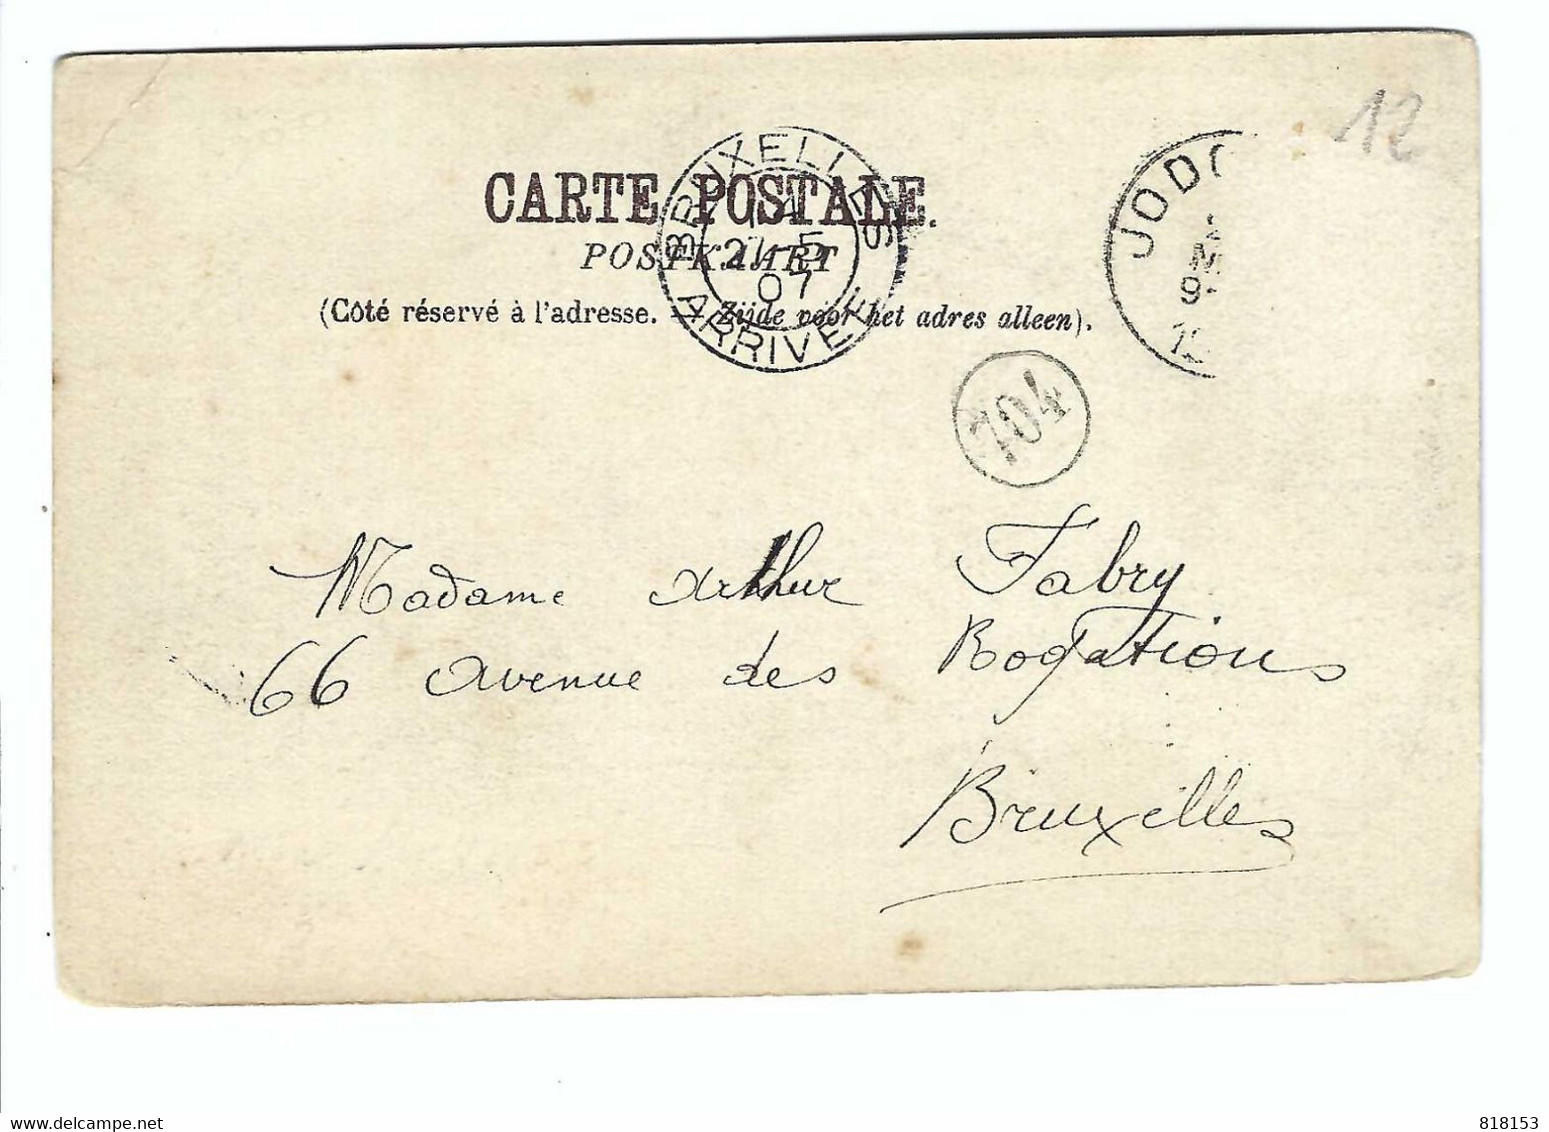 12
CARTE POSTALE.
POSTKAART
(Côté réservé à l'adresse. — Zijde voor het adres alleen).
BRUXELLES
21-5
07
ARRIVEE
JODO
704
Madame Arthur Fabry
66 Avenue des Rogations
Bruxelles
delcampe.net
818153